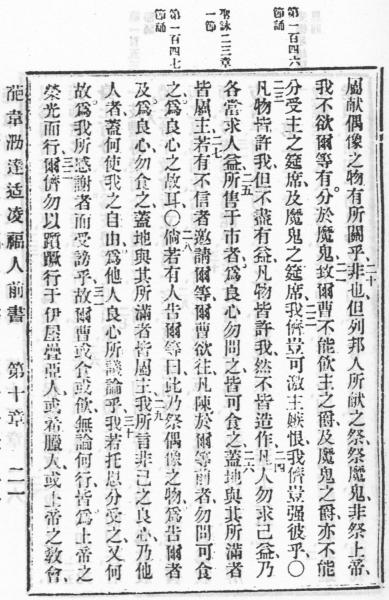 第一百四六節誦
聖詠二三章一節
第一百四七節誦
屬献偶像之物有所關乎非也二十但列邦人所献之祭、祭魔鬼、非祭上帝、
我不欲爾等有分於魔鬼、二一致爾曹不能飲主之爵及魔鬼之爵、亦不能
分受主之筵席及魔鬼之筵席、二二我儕豈可激主嫉恨、我儕豈强彼乎〇
二三凡物皆許我、但不盡有益、凡物皆許我、然不皆造作、二四凡人勿求己益、乃
各當求人益、二五所售于市者、爲良心勿問之、皆可食之、二六蓋地與其所滿者
皆屬主、二七若有不信者邀請爾等、爾曹欲往、凡陳於爾等前者、勿問可食
之、爲良心之故耳〇二八倘若有人告爾等曰、此乃祭偶像之物、爲告爾者
及爲良心勿食之、蓋地與其所滿者皆屬主、二九我所言非己之良心、乃他
人者、蓋何使我之自由、爲他人良心所議論乎、三十我若托恩分受之、又何
故爲我所感謝者而受謗乎、三一故爾曹或食或飲、無論何行、皆爲上帝之
榮光而行、三二爾儕勿以躓蹶行于伊屋疊亞人、或希臘人、或上帝之教會、
葩韋泐達适凌福人前書 第十章 二一